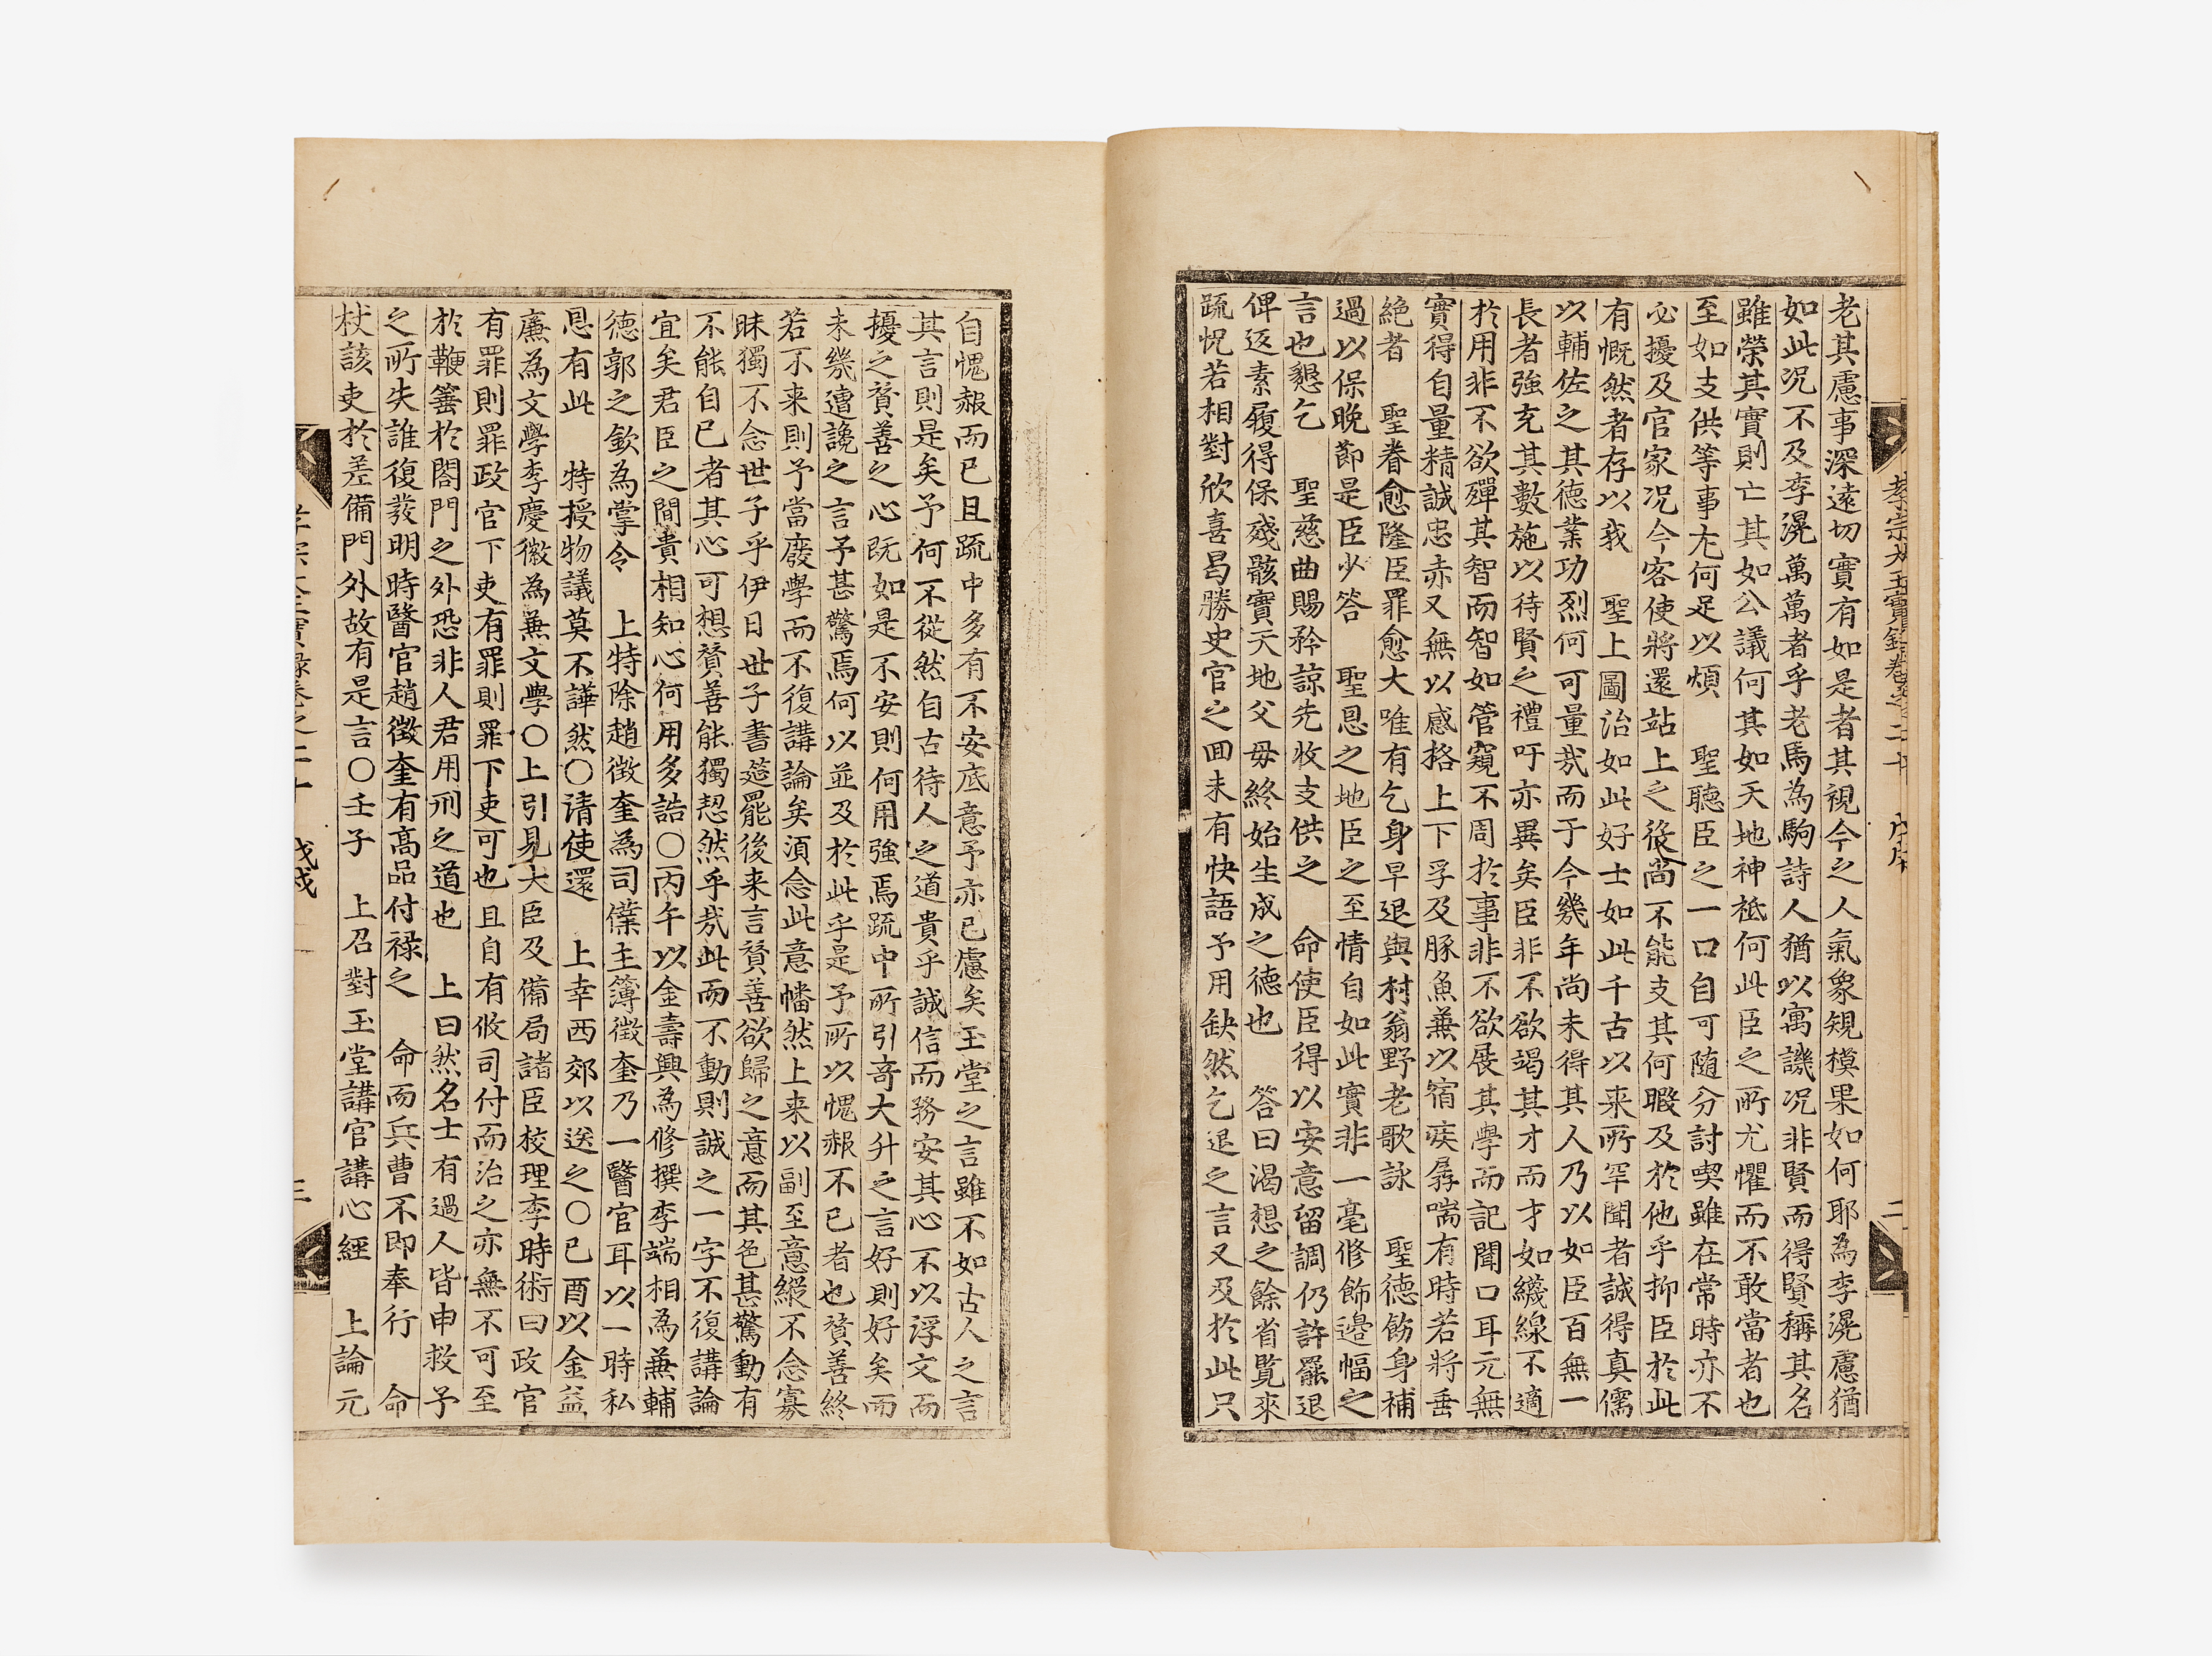 孝宗大王實錄卷之二十 戊戌 二
老其慮事深遠切實有如是者其視今之人氣象規模果如何耶為李滉慮猶
如此况不及李滉萬萬者乎老馬為駒詩人猶以寓譏况非賢而得賢稱其名
雖榮其實則亡其如公議何其如天地神祗何此臣之所尤懼而不敢當者也
至如支供等事尤何足以煩 聖聽臣之一口自可隨分討喫雖在常時亦不
必擾及官家况今客使將還站上之後尚不能支其何暇及於他乎抑臣於此
有慨然者存以我 聖上圖治如此好士如此千古以来所罕聞者誠得真儒
以輔佐之其德業功烈何可量㢤而于今幾年尚未得其人乃以如臣百無一
長者強充其數施以待賢之禮吁亦異矣臣非不欲竭其才而才如綫線不適
於用非不欲殫其智而智如管窺不周於事非不欲展其學而記聞口耳元無
實得自量精誠忠赤又無以感格上下孚及豚魚兼以宿疾孱喘有時若將垂
絶者 聖眷愈隆臣罪愈大唯有乞身早退與村翁野老歌詠 聖德飭身補
過以保晚節是臣少答 聖恩之地臣之至情自如此實非一毫修飾邊幅之
言也懇乞 聖慈曲賜矜諒先收支供之 命使臣得以安意留調仍許罷退
俾返素履得保殘骸實天地父母終始生成之德也 答曰渴想之餘省覧來
疏怳若相對欣喜曷勝史官之回未有快語予用缺然乞退之言又及於此只
自愧赧而已且疏中多有不安底意予亦已慮矣玉堂之言雖不如古人之言
其言則是矣予何不從然自古待人之道貴乎誠信而務安其心不以浮文而
擾之贊善之心既如是不安則何用強焉疏中所引竒大升之言好則好矣而
未幾遭讒之言予甚驚焉何以並及於此乎是予所以愧赧不已者也贊善終
若不来則予當廢學而不復講論矣須念此意幡然上来以副至意縱不念寡
昧獨不念世子乎伊日世子書筵罷後来言贊善欲歸之意而其色甚驚動有
不能自已者其心可想贊善能獨恝然乎㢤此而不動則誠之一字不復講論
宜矣君臣之間貴相知心何用多誥○丙午以金壽興為修撰李端相為兼輔
德郭之欽為掌令 上特除趙徵奎為司僕主簿徵奎乃一醫官耳以一時私
恩有此 特授物議莫不譁然○清使還 上幸西郊以送之○己酉以金益
廉為文學李慶徽為兼文學○上引見大臣及備局諸臣校理李時術曰政官
有罪則罪政官下吏有罪則罪下吏可也且自有攸司付而治之亦無不可至
於鞭箠於閤門之外恐非人君用刑之道也 上曰然名士有過人皆申救予
之所失誰復發明時醫官趙徵奎有高品付祿之 命而兵曹不即奉行 命
杖該吏於差備門外故有是言○壬子 上召對玉堂講官講心經 上論元
孝宗大王實錄卷之二十 戊戌 三